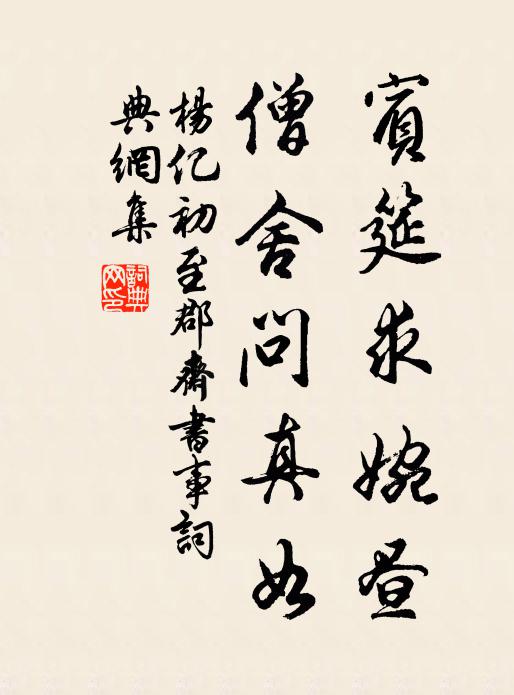 賓筵求婉畫
僧舍問真如
楊亿初至郡齋書事詞
典網集
詞典网印